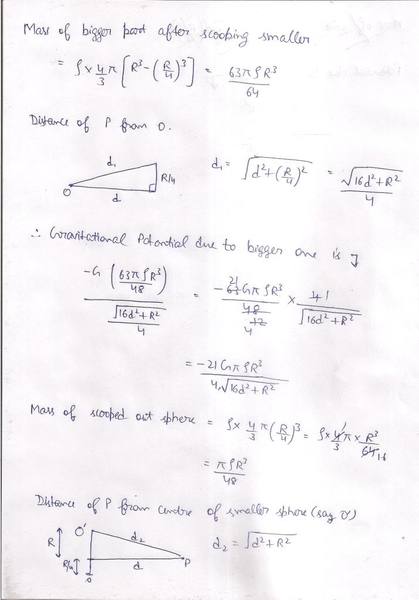 Mass of bigger part after scooping smaller
= ρ × 4/3 π [R³ - (R/4)³] = 63πρR³/64
Distance of P from O.
d₁ R/4 O d d₁ = √(d² + (R/4)²) = √(16d² + R²)/4
∴ Gravitational Potential due to bigger one is ↓
-G (63πρR³/48) / (√(16d² + R²)/4) = -63 21 GπρR³/48 12 4 × 4 1/√(16d² + R²)
= -21GπρR³/4√(16d² + R²)
Mass of scooped out sphere = ρ × 4/3 π (R/4)³ = ρ × 4/3 π × R³/64 16
= πρR³/48
Distance of P from centre of smaller sphere (say O')
O' R d₂ R/4 d P O d₂ = √(d² + R²)